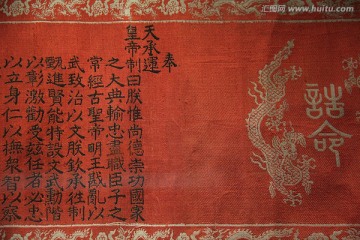 誥命
奉
天承運
皇帝制曰朕惟尚德崇功國家
之大典輸忠盡職臣子之
常經古聖帝明王戡亂以
武致治以文朕欽承往制
甄進賢能特設文武勳階
以彰激勸受茲任者必忠
以立身仁以撫眾智以察
微图网
www.huitu.com